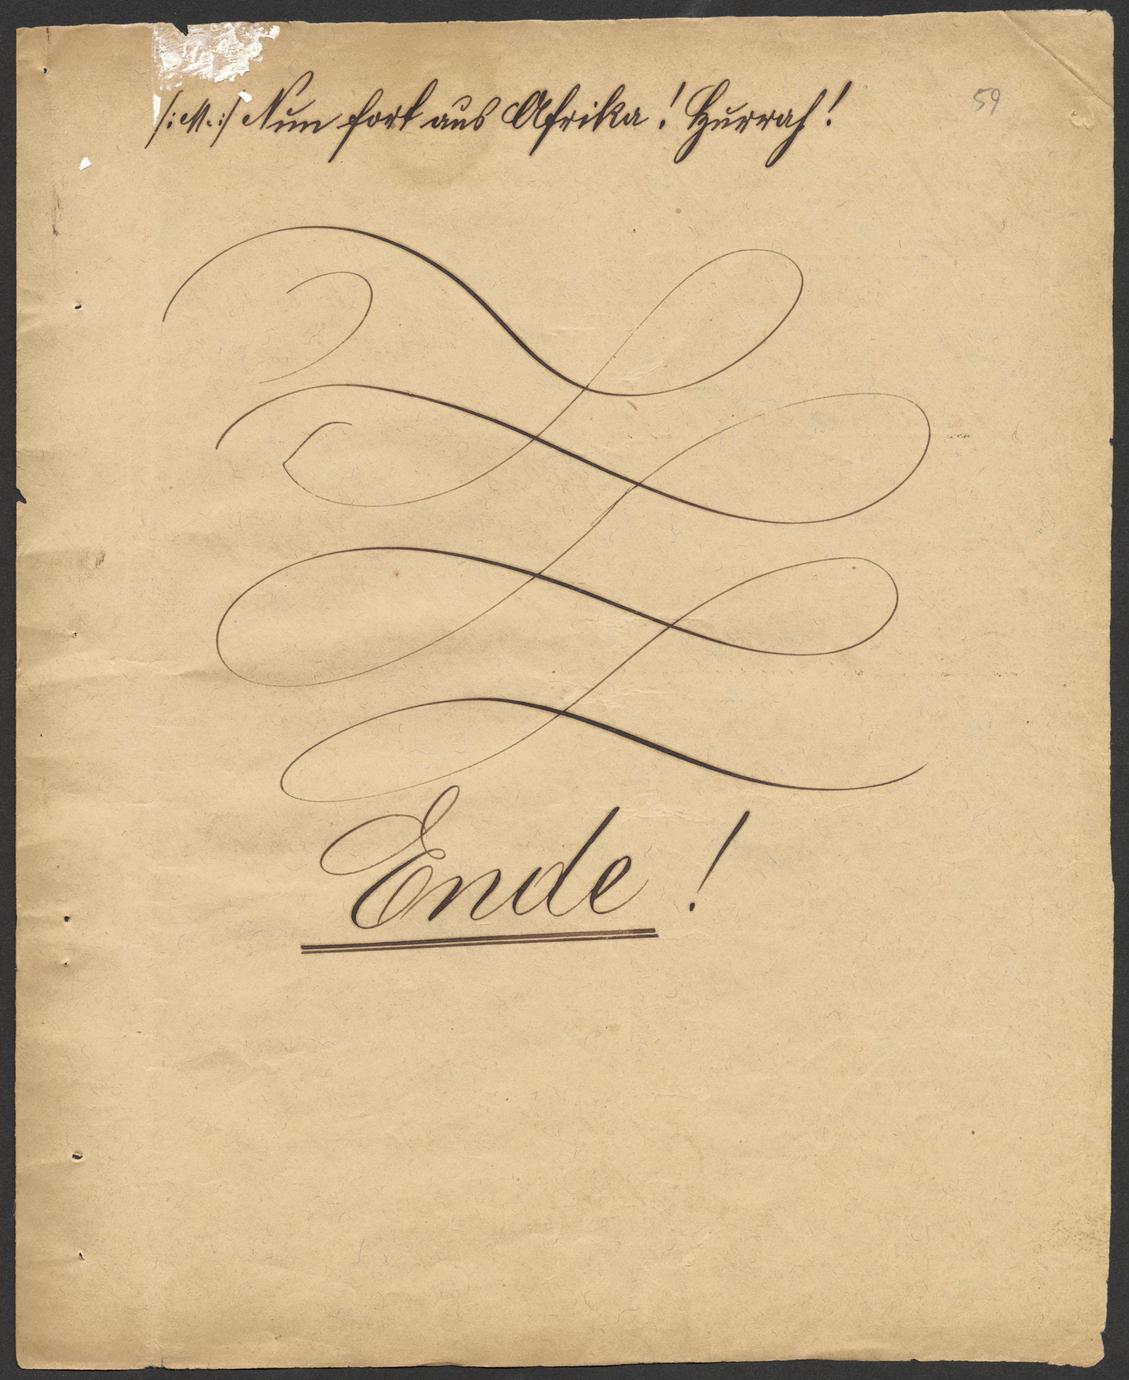 /:M.:/ Nun fort aus Afrika! Hurrah!
59
Ende!